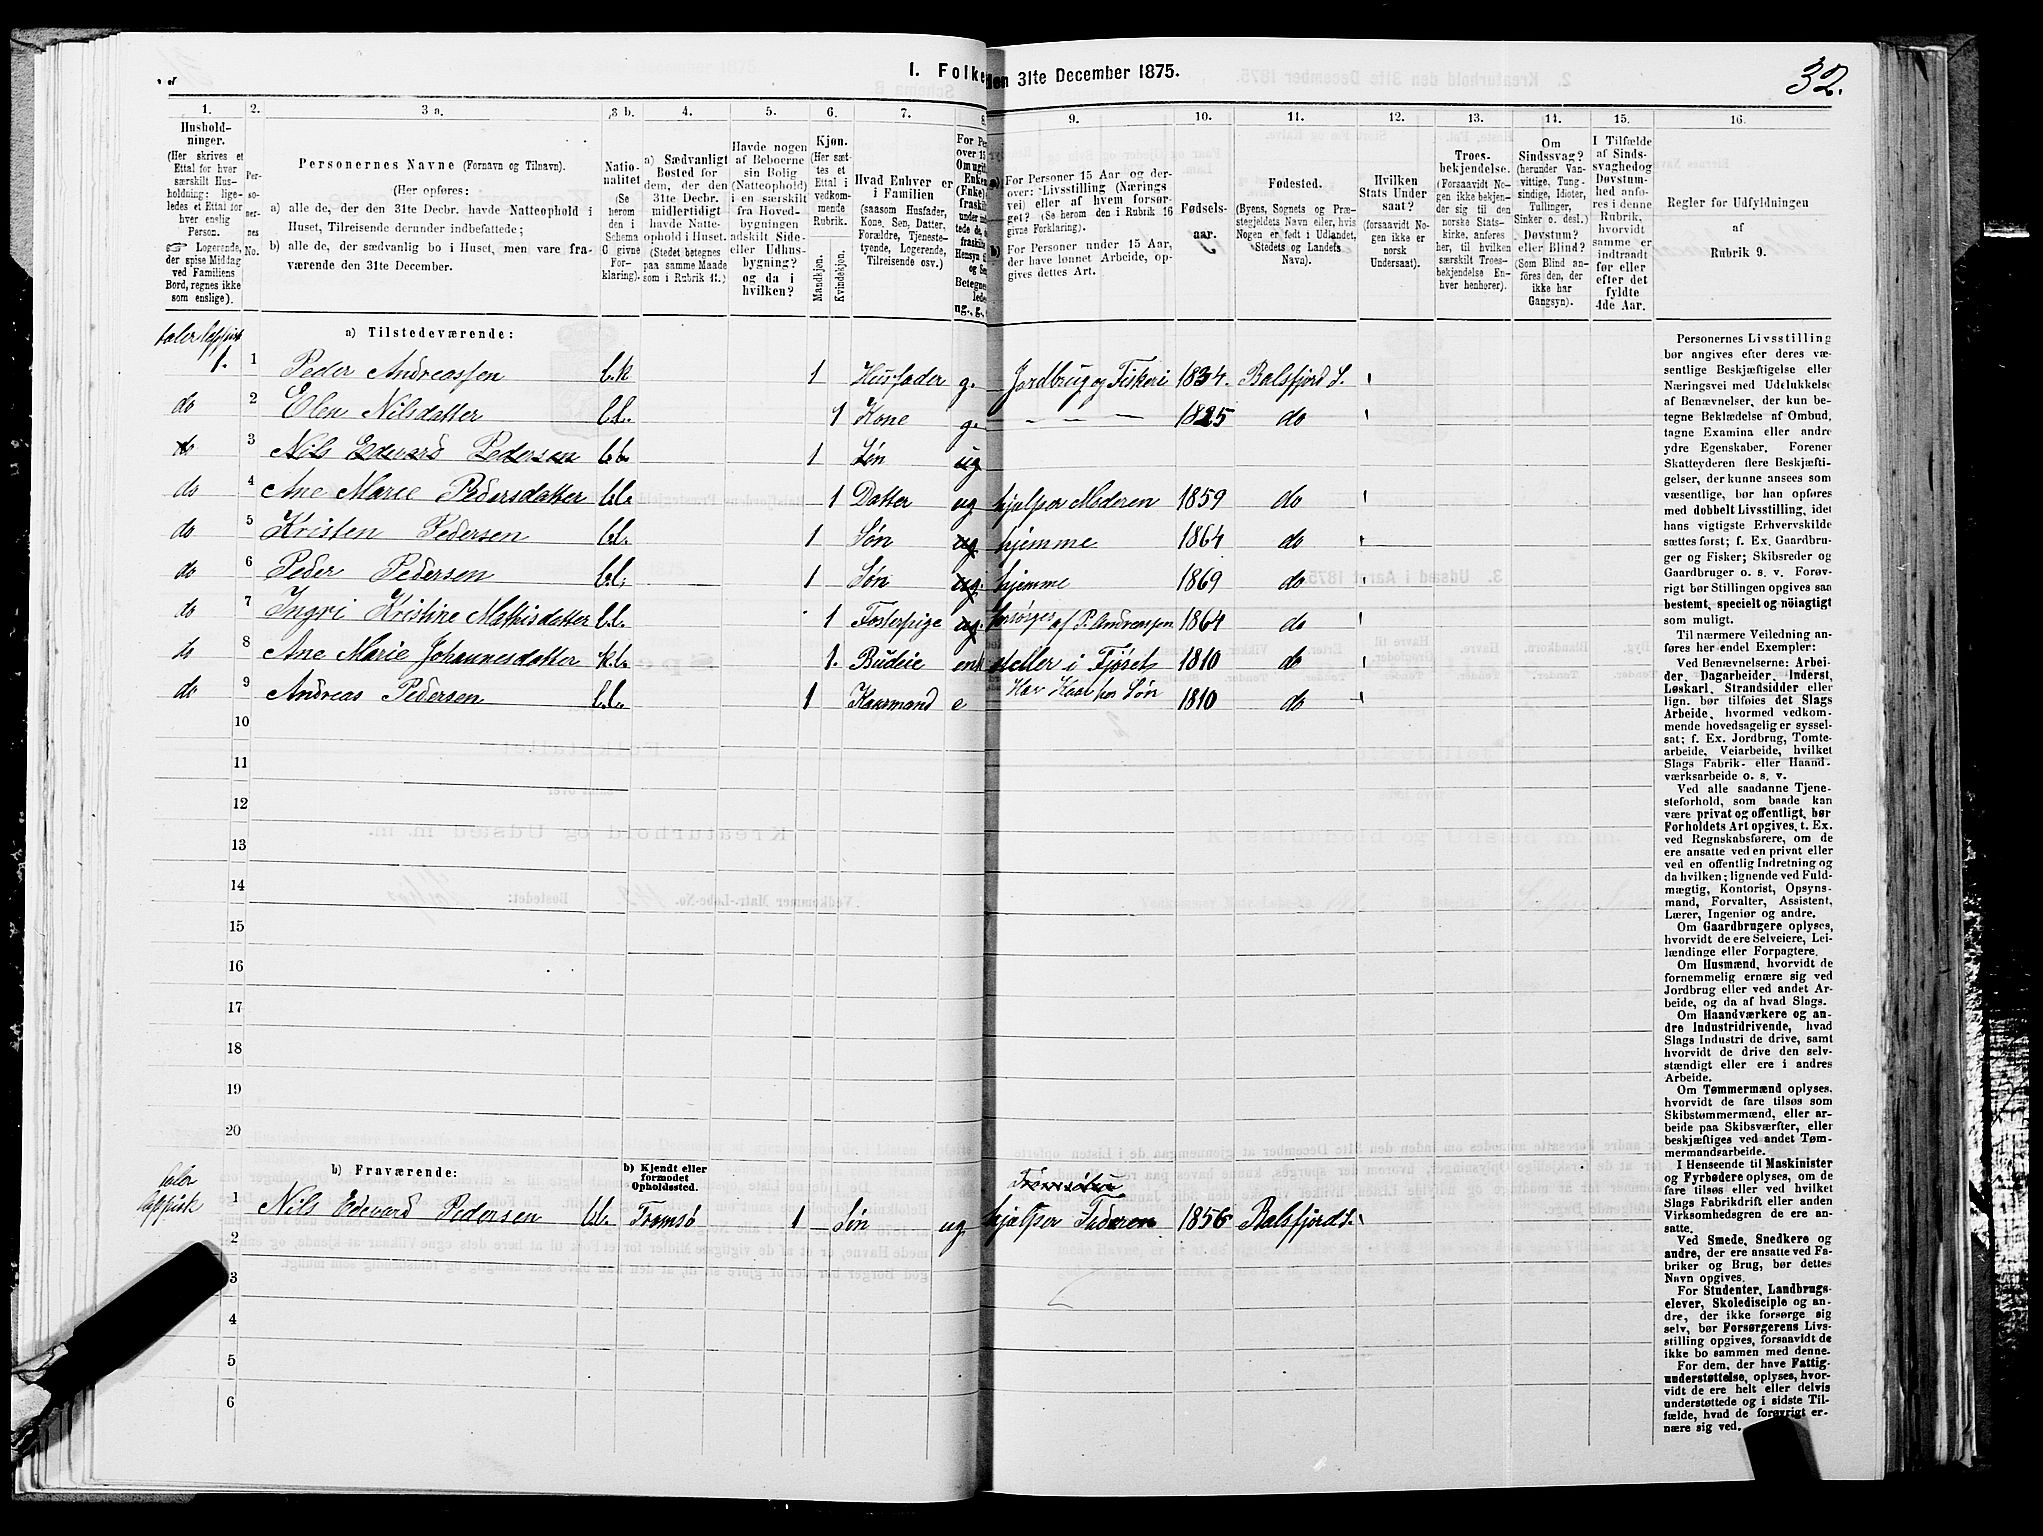 I. Folke
den 31te December 1875.
32.
1.
Hushold-
ninger.
(Her skrives et
Ettal for hver
særskilt Hus-
holdning: lige-
ledes et Ettal for
hver enslig
Person.
☞ Logerende,
der spise Middag
ved Familiens
Bord, regnes ikke
som enslige).
2.
Per-
so-
ner-
nes
No.
3 a.
Personernes Navne (Fornavn og Tilnavn).
(Her opføres:
a) alle de, der den 31te Decbr. havde Natteophold i
Huset, Tilreisende derunder indbefattede;
b) alle de, der sædvanlig bo i Huset, men vare fra-
værende den 31te December.
3 b.
Natio-
nalitet
(Se
herom
den i
Schema
G givne
For-
klaring).
4.
a) Sædvanligt
Bosted for
dem, der den
31te Decbr.
midlertidigt
havde Natte-
ophold i Huset.
(Stedet betegnes
paa samme Maade
som i Rubrik 11.)
5.
Havde nogen
af Beboerne
sin Bolig
(Natteophold)
i en særskilt
fra Hoved-
bygningen
adskilt Side-
eller Udhus-
bygning?
og da i
hvilken?
6.
Kjøn.
(Her sæt-
tes et
Ettal i
vedkom-
mende
Rubrik.
Mandkjøn.
Kvindekjøn.
7.
Hvad Enhver er
i Familien
(saasom Husfader,
Kone, Søn, Datter,
Forældre, Tjeneste-
tyende, Logerende,
Tilreisende osv.)
8.
For Pe
over 15
Omugift
Enken
(Enke)
fraskilt
under ind
tede de,
fraskilte
Hensyn til
og Se
Betegne
lede
ug., g.,
9.
a) For Personer 15 Aar og der-
over: Livsstilling (Nærings
vei) eller af hvem forsør-
get? (Se herom den i Rubrik 16
givne Forklaring).
b) For Personer under 15 Aar,
der have lønnet Arbeide, op-
gives dettes Art.
10.
Fødsels-
aar.
11.
Fødested.
(Byens, Sognets og Præ-
stegjeldets Navn eller, hvis
Nogen er født i Udlandet,
Stedets og Landets
Navn).
12.
Hvilken
Stats Under
saat?
(forsaavidt No-
gen ikke er
norsk
Undersaat).
13.
Troes-
bekjendelse.
(Forsaavidt No-
gen ikke bekjen-
der sig til den
norske Stats-
kirke, anføres
her, til hvilken
særskilt Troes-
bekjendelse En-
hver henhører).
14.
Om
Sindssvag?
(herunder Van-
vittige, Tung-
sindige, Idioter,
Tullinger,
Sinker o. desl.)
Døvstum?
eller Blind?
(Som Blind an-
føres den, der
ikke har
Gangsyn).
15.
I Tilfælde
af Sinds-
svaghedog
Døvstum-
hed anfø-
res i denne
Rubrik,
hvorvidt
samme er
indtraadt
før eller
efter det
fyldte
4de Aar.
16.
Regler for Udfyldningen
af
Rubrik 9.
taler lappisk
a) Tilstedeværende:
1. 1 Peder Andreassen b.k 1 Husfader g. Jordbrug og Fiskeri 1834. Balsfjord S.
do 2 Elen Nilsdatter b.l. 1 Kone g. — — — 1825 do
do 3 Nils Edevard Pedersen b.l. 1 Søn ug
do 4 Ane Marie Pedersdatter b.l. 1 Datter ug hjælper Moderen 1859 do
do 5 Kristen Pedersen b.l. 1 Søn ug hjemme 1864 do
do 6 Peder Pedersen b.l. 1 Søn ug. hjemme 1869 do
do 7 Ingri Kristine Mathisdatter b.l. 1 Fosterpige ug. forsørges af P. Andreassen 1864 do
do 8 Ane Marie Johannesdatter k.l. 1. Budeie enk steller i Fjøset 1810 do
do 9 Andreas Pedersen b.l. 1 Kaarmand e Har Kaar hos Søn 1810 do
10
11
12
13
14
15
16
17
18
19
20
taler
lappisk
b) Fraværende:
b) Kjendt eller
formodet
Opholdssted.
1 Nils Edevard Pedersen b.l. Tromsø 1 Søn ug. hjælper Faderen 1856 Balsfjord S.
2
3
4
5
6
Personernes Livsstilling
bør angives efter deres væ-
sentlige Beskjæftigelse eller
Næringsvei med Udelukkelse
af Benævnelser, der kun be-
tegne Beklædelse af Ombud,
tagne Examina eller andre
ydre Egenskaber. Forener
Skatteyderen flere Beskjæfti-
gelser, der kunne ansees som
væsentlige, bør han opføres
med dobbelt Livsstilling, idet
hans vigtigste Erhvervskilde
sættes først; f. Ex. Gaardbru-
ger og Fisker; Skibsreder og
Gaardbruger o. s. v. Forøv-
rigt bør Stillingen opgives saa
bestemt, specielt og nöiagtigt
som muligt.
Til nærmere Veiledning an-
føres her endel Exempler:
Ved Benævnelserne: Arbei-
der, Dagarbeider, Inderst,
Løskarl, Strandsidder eller
lign. bør tilføies det Slags
Arbeide, hvormed vedkom-
mende hovedsagelig er syssel-
sat; f. Ex. Jordbrug, Tomte-
arbeide, Veiarbeide, hvilket
Slags Fabrik- eller Haand-
værksarbeide o. s. v.
Ved alle saadanne Tjene-
steforhold, som baade kan
være privat og offentligt, bør
Forholdets Art opgives, t. Ex.
ved Regnskabsførere, om de
ere ansatte ved en privat eller
ved en offentlig Indretning og
da hvilken; lignende ved Fuld-
mægtig, Kontorist, Opsyns-
mand, Forvalter, Assistent,
Lærer, Ingeniør og andre.
Om Gaardbrugere oplyses,
hvorvidt de ere Selveiere, Lei-
lændinge eller Forpagtere.
Om Husmænd, hvorvidt de
fornemmelig ernære sig ved
Jordbrug eller ved andet Ar-
beide, og da af hvad Slags.
Om Haandværkere og an-
dre Industridrivende, hvad
Slags Industri de drive, samt
hvorvidt de drive den selv-
stændigt eller ere i andres
Arbeide.
Om Tømmermænd oplyses,
hvorvidt de fare tilsøs som
Skibstømmermænd, eller ar-
beide paa Skibsværfter, eller
beskjæftiges ved andet Tøm-
mermandsarbeide.
I Henseende til Maskinister
og Fyrbødere oplyses, om de
fare tilsøs eller ved hvilket
Slags Fabrikdrift eller anden
Virksomhedsgren de ere an-
satte.
Ved Smede, Snedkere og
andre, der ere ansatte ved Fa-
briker og Brug, bør dettes
Navn opgives.
For Studenter, Landbrugs-
elever, Skoledisciple og an-
dre, der ikke forsørge sig
selv, bør Forsørgerens Livs-
stilling opgives, forsaavidt de
ikke bo sammen med denne.
For dem, der have Fattig-
understøttelse, oplyses, hvor-
vidt de ere helt eller delvis
understøttede og i sidste Til-
fælde, hvad de forøvrigt er-
nære sig ved.